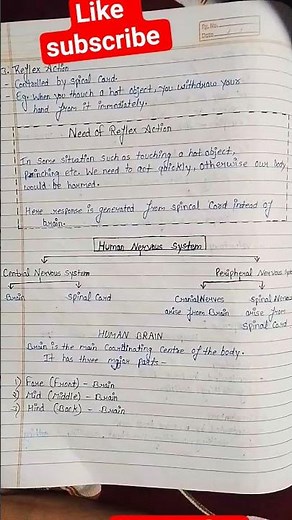 Like
subscribe
Pg. No.
Date
3. Reflex Action
- Controlled by spical Card.
- Eg. When you thouch a hot object, you withdraw your
hand from it immediately.
Need of Reflex Action
In Some situation such as touching a hot object,
painching etc. We need to act quickly, otherwise our body
would be harmed.
Here response is generated from spincal Cord instead of
brain.
Human Nervous System
Central Nervous System Peripheral Nervous
Brain Spinal Card Cranial Nerves Spinal Nerves
arise from Brain arise from
Spinal Cord
HUMAN BRAIN
Brain is the main Coordinating Centre of the body.
It has three major parts -
1) Fore (Front) - Brain
2) Mid (Middle) - Brain
3) Hind (Back) - Brain